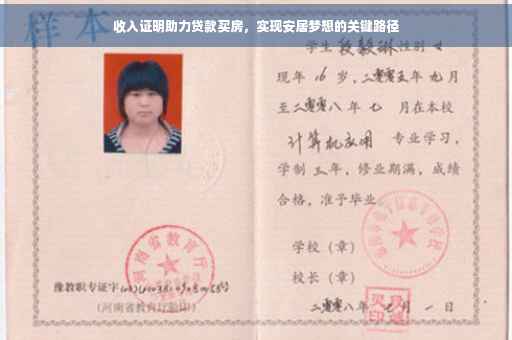 收入证明助力贷款买房，实现安居梦想的关键路径
样本
学生段毅琳性别 女
现年 16 岁，二零零五年 九 月
至二零零八年 七 月在本校
计算机应用 专业学习，
学制 三 年，修业期满，成绩
合格，准予毕业
学校（章）
校长（章）
二零零八年 七 月 一 日
河南省教育厅
豫教职专证字
（河南省教育厅验印）